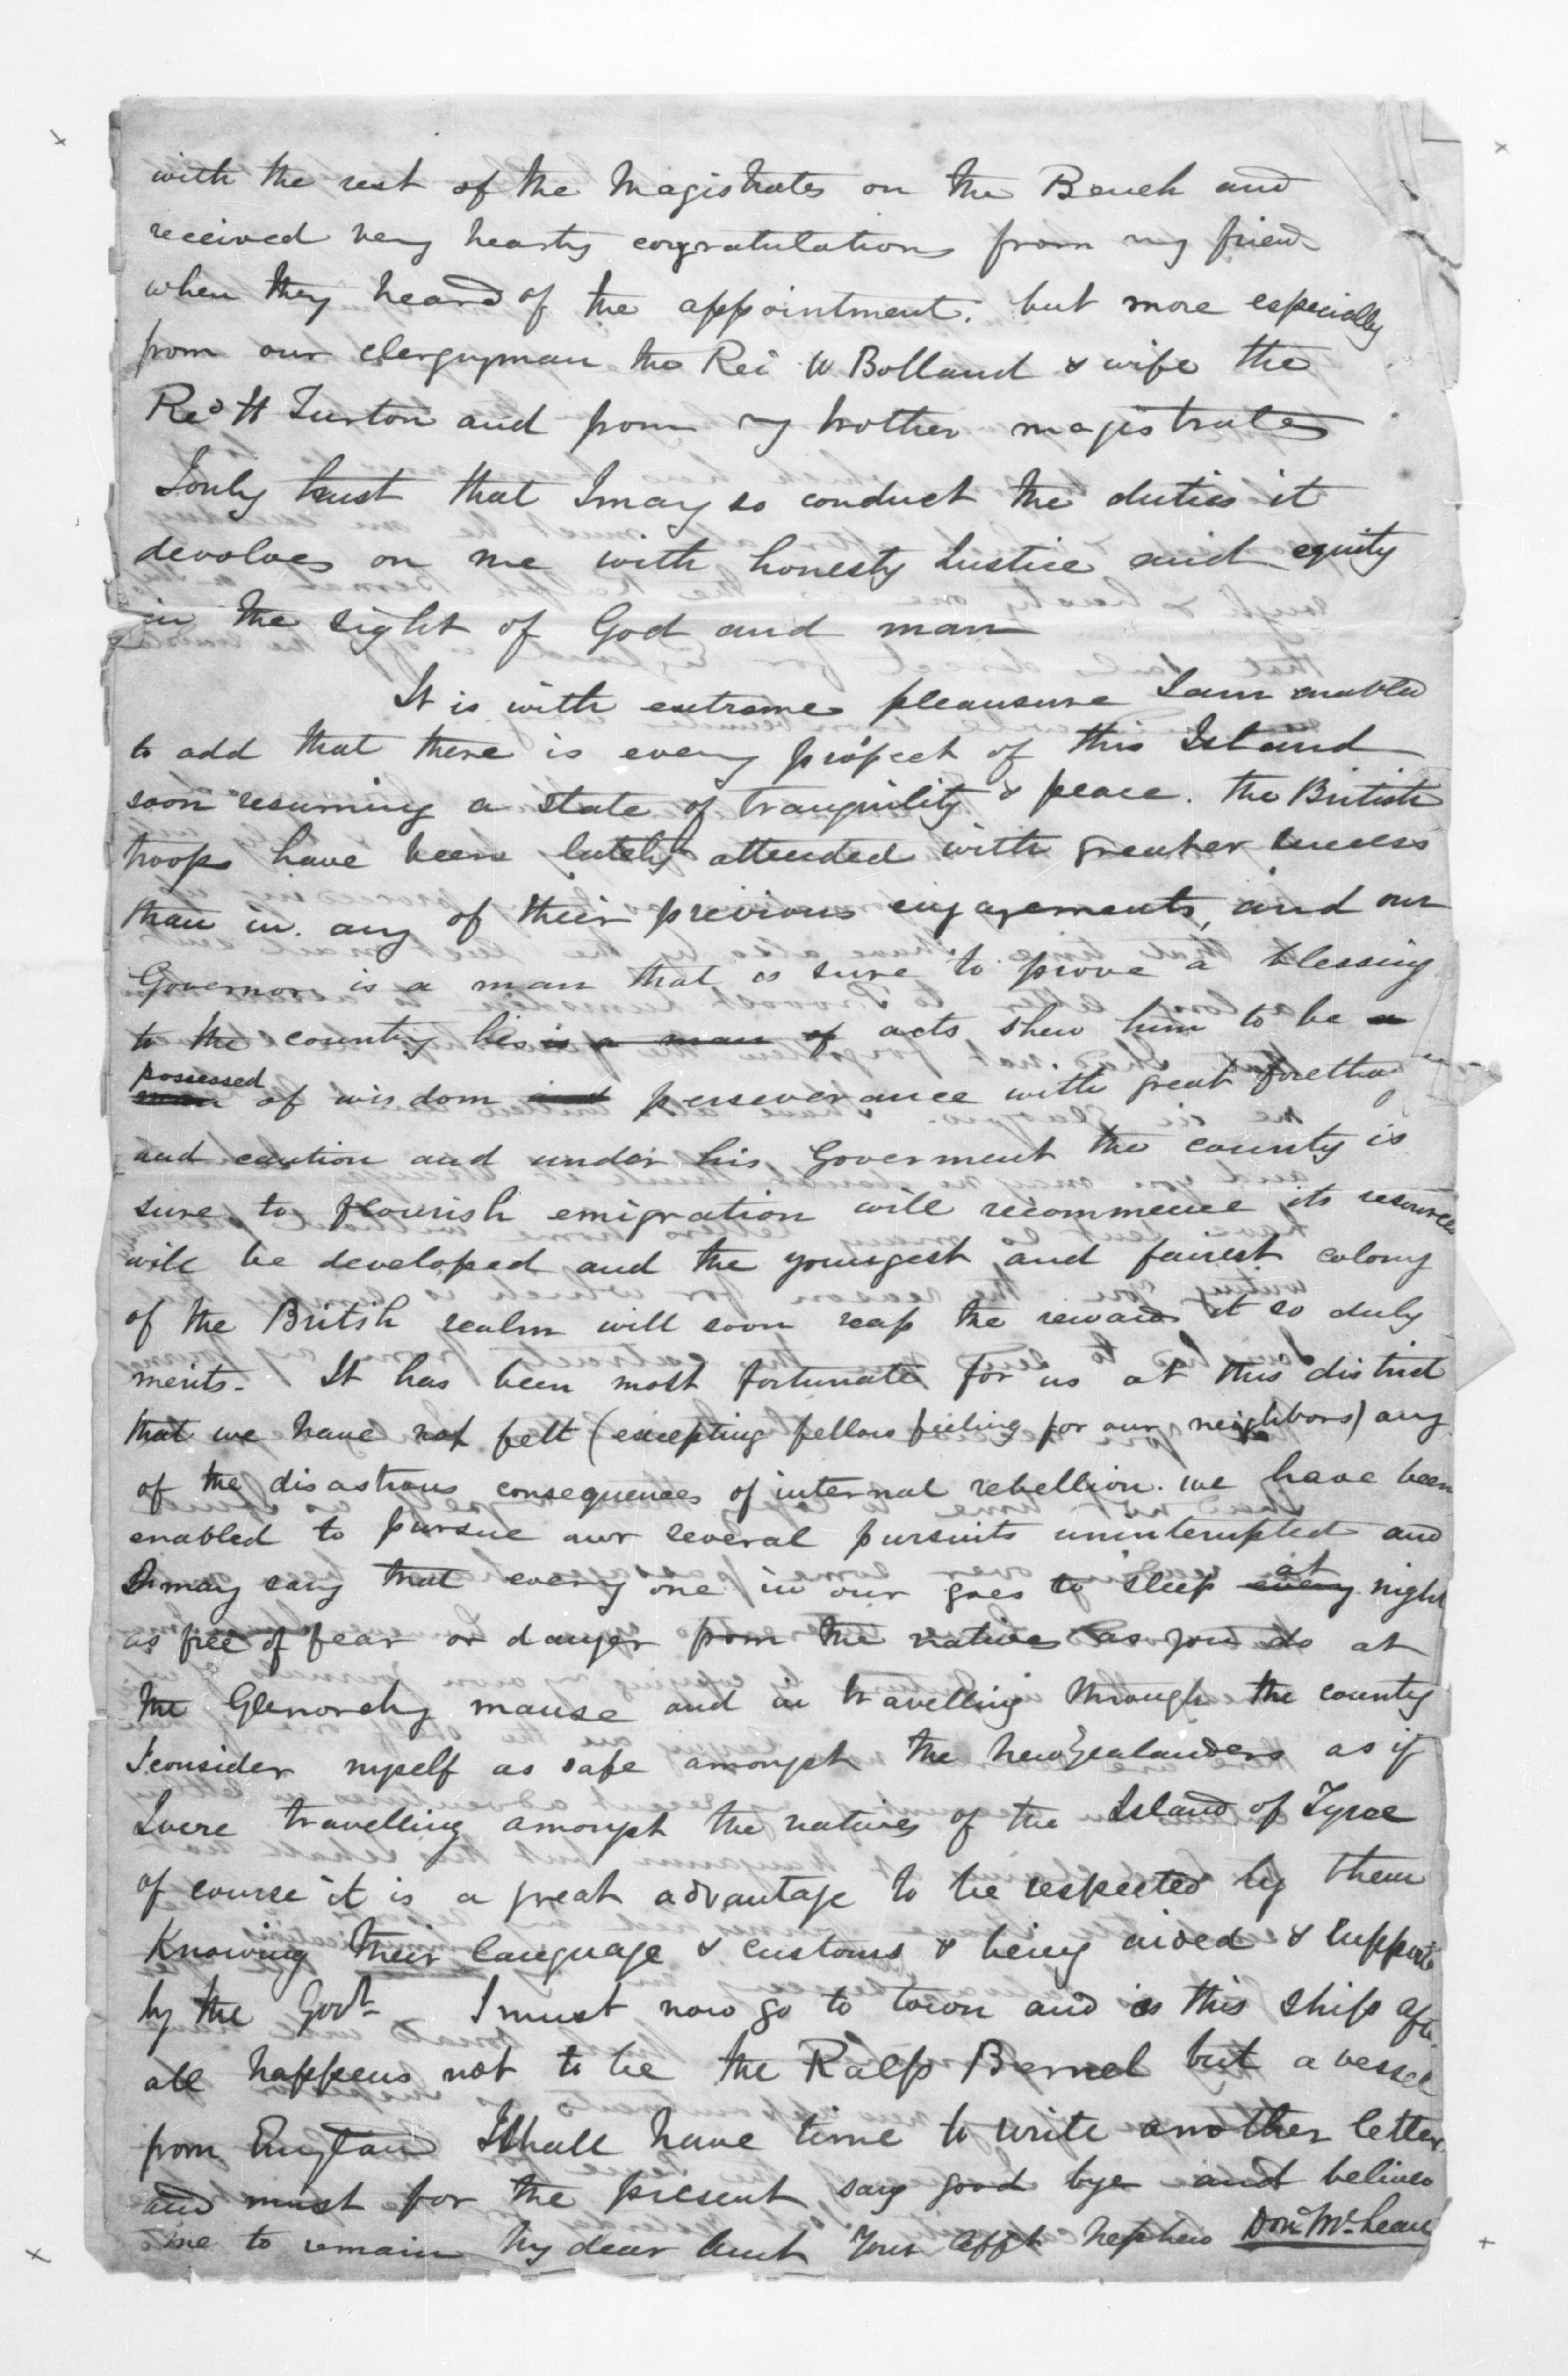 with the rest of the Magistrates on the Bench and
received very hearty congratulations from my friends
when they heard of the appointment. but more especially
from our clergyman the Rev W Bolland & wife the
Revd H Turton and from my brother magistrates
I only trust that I may so conduct the duties it
devolves on me with honesty Justice and equity
in the sight of God and man
It is with extreme pleausure I am enabled
to add that there is every prospect of this Island
soon resuming a state of tranquility & peace. the British
troops have been lately attended with greater success
than in any of their previous engagements, and our
Governor is a man that is sure to prove a blessing
to the country his is a man of acts shew him to be a
possessed
man of wisdom and perseverance with great foretho
and caution and under his Goverment the county is
sure to flourish emigration will recommence its resources
will be developed and the youngest and fairest colony
of the Britsh realm will soon reap the reward it so duly
merits. It has been most fortunate for us at this district
that we have not felt (excepting fellow feeling for our neighbors) any
of the disastrous consequences of internal rebellion. we have been
enabled to pursue our several pursuits uninterupted and
I may say that every one in our goes to sleep every at night
as free of fear or danger from the natives as you do at
the Glenorchy manse and in travelling through the county
I consider myself as safe amongst the New Zealanders as if
I were travelling amongst the natives of the Island of Tyree
of course it is a great advantage to be respected by them
Knowing their language & customs & being aided & supported
by the Govt I must now go to town and as this ship after
all happens not to be the Ralp Bernel but a vessel
from England I shall have time to write another letter
and must for the present say good bye and believe
me to remain My dear Aunt Your Afft Nephew Don McLean